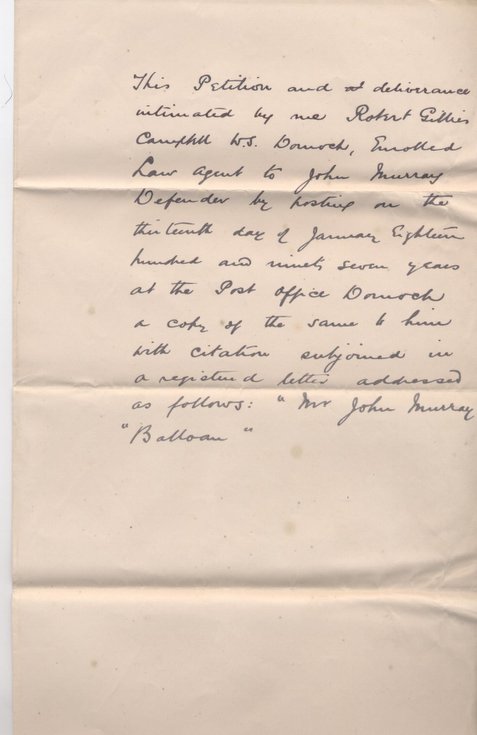 This Petition and deliverance
intimated by me Robert Gillies
Campbell W.S. Dornoch, Enrolled
Law Agent to John Murray
Defender by posting on the
thirteenth day of January Eighteen
hundred and ninety seven years
at the Post Office Dornoch
a copy of the same to him
with citation subjoined in
a registered letter addressed
as follows: "Mr John Murray
"Balloan"